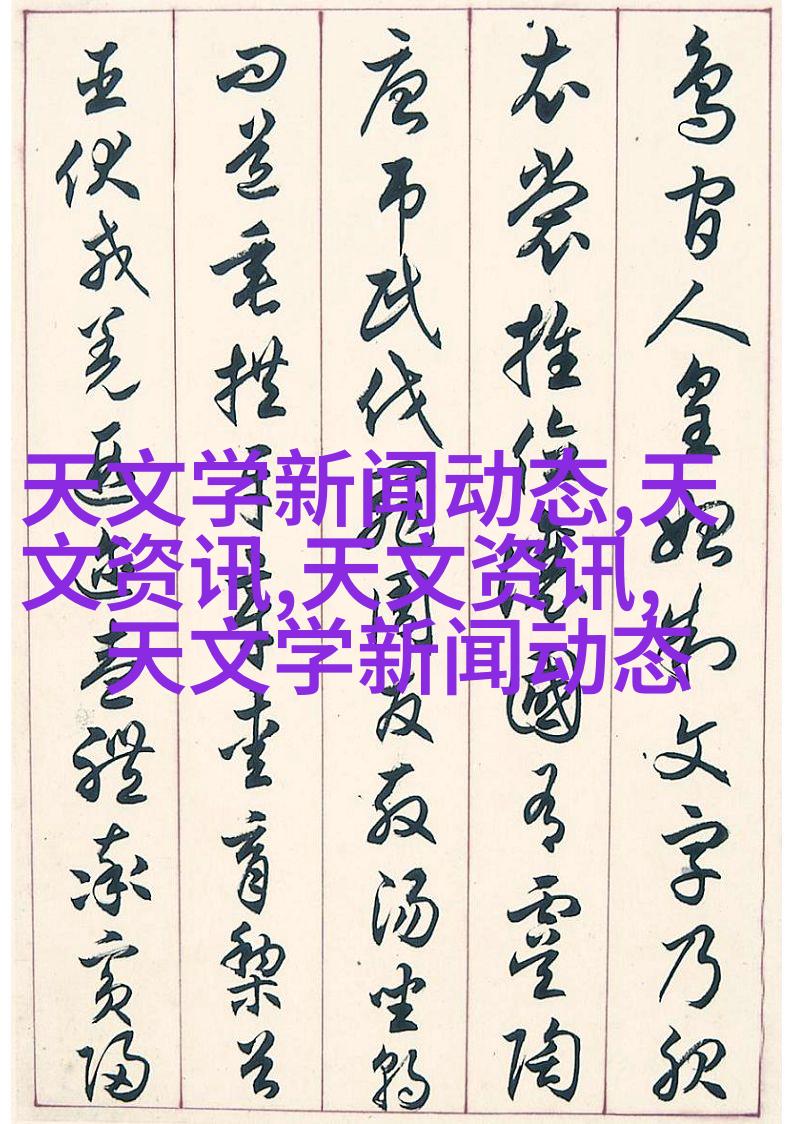 鳥官人皇始制文字乃服
衣裳推位讓國有虞陶
唐吊民伐罪周發殷湯坐朝
問道垂拱平章愛育黎首
臣伏戎羌遐邇壹體率賓歸
天文学新闻动态,天
文资讯,天文资讯,
天文学新闻动态